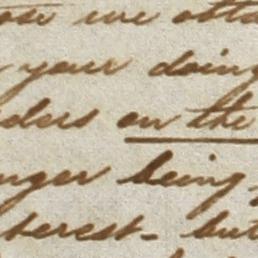 ose we atta
your doing
ders on the
nger being,
terest - but